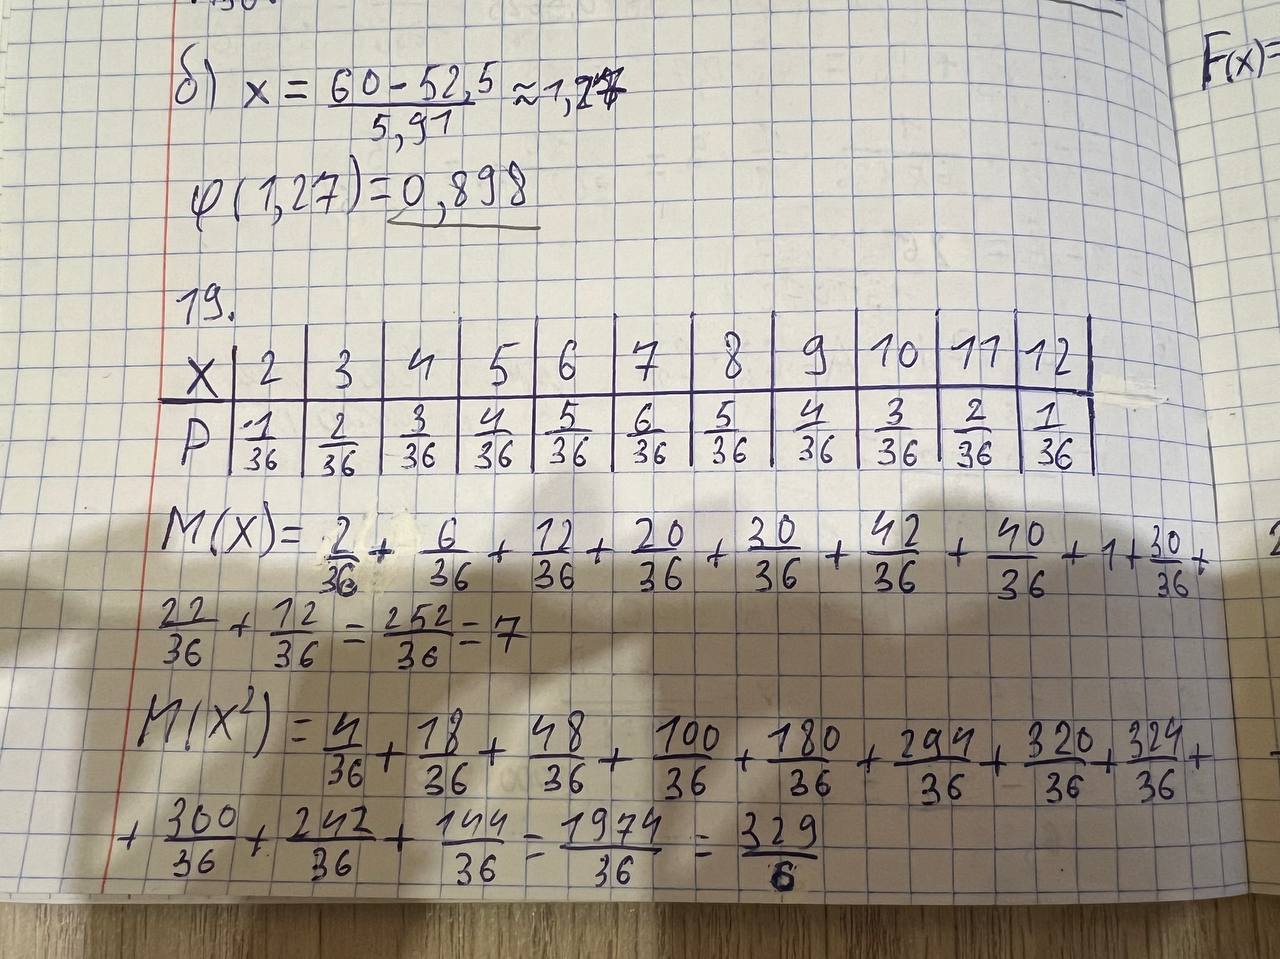 б) x = 60 - 52,5 / 5,91 ≈ 1,27
φ(1,27) = 0,898
F(x) =
19.
X 2 3 4 5 6 7 8 9 10 11 12
P 1/36 2/36 3/36 4/36 5/36 6/36 5/36 4/36 3/36 2/36 1/36
M(X) = 2/36 + 6/36 + 12/36 + 20/36 + 30/36 + 42/36 + 40/36 + 1 + 30/36 +
22/36 + 12/36 = 252/36 = 7
M(X²) = 4/36 + 18/36 + 48/36 + 100/36 + 180/36 + 294/36 + 320/36 + 324/36 +
+ 300/36 + 242/36 + 144/36 = 1974/36 = 329/6